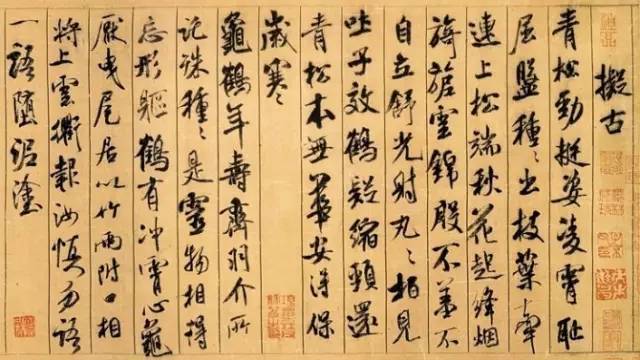 擬古
青松勁挺姿凌霄恥
屈盤種〻出枝葉牽
連上松端秋花起絳烟
旖旎雲錦殷不羞不
自立舒光射丸〻栢見
吐子效鶴疑縮頸還
青松本無華安得保
歲寒
龜鶴年壽齊羽介所
託殊種〻是靈物相得
忘形軀鶴有冲霄心龜
厭曳尾居以竹兩附口相
將上雲衢報汝慎勿語
一語墮泥塗